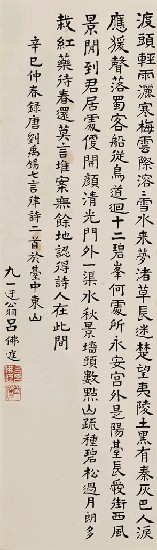 渡頭輕雨灑寒梅雲際溶溶雪水來夢渚草長迷楚望夷陵土黑有秦灰巴人淚
應猨聲落蜀客船從鳥道迴十二碧峯何處所永安宮外是陽臺長愛街西風
景閒到君居處便開顏清光門外一渠水秋景墻頭數點山疏種碧松過月朗多
栽紅藥待春還莫言堆案無餘地認得詩人在此間
辛巳仲春錄唐劉禹錫七言律詩二首於臺中東山
九一迂翁呂佛庭